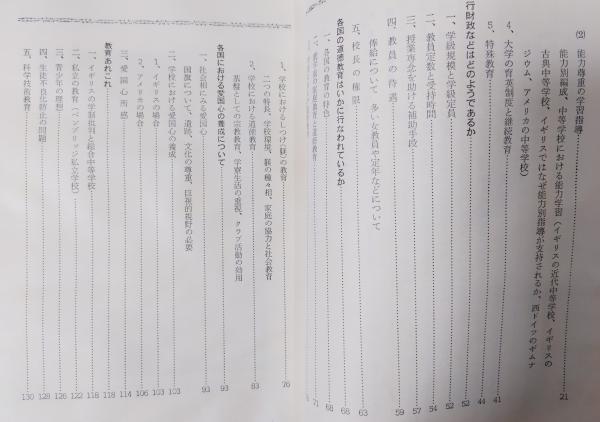 (2) 能力尊重の学習指導 21
能力別編成、中等学校における能力学習(イギリスの近代中等学校、イギリスの
古典中等学校、イギリスではなぜ能力別指導が支持されるか、西ドイツのギムナ
ジウム、アメリカの中等学校)
4、大学の育英制度と継続教育 41
5、特殊教育 44
行財政などはどのようであるか
一、学級規模と学級定員 52
二、教員定数と受持時間 52
三、授業専念を助ける補助手段 54
四、教員の待遇 57
俸給について 多い女教員や定年などについて 59
五、校長の権限 63
各国の道徳教育はいかに行なわれているか 68
一、各国の教育の特色 68
71
1、学校におけるしつけ(躾)の教育 76
二つの特色、学校環境、躾の種々相、家庭の協力と社会教育
2、学校における道徳教育 83
基盤としての宗教教育、学寮生活の重視、クラブ活動の効用
各国における愛国心の養成について 93
一、社会相にみる愛国心 93
国旗について、遺跡、文化の尊重、巨視的視野の必要
二、学校における愛国心の養成 103
1、イギリスの場合 103
2、アメリカの場合 106
三、愛国心所感 114
教育あれこれ 118
一、イギリスの学制批判と総合中等学校 118
二、私立の教育(ベンブリッジ私立学校) 122
三、青少年の理想 126
四、生徒不良化防止の問題 128
五、科学技術教育 130